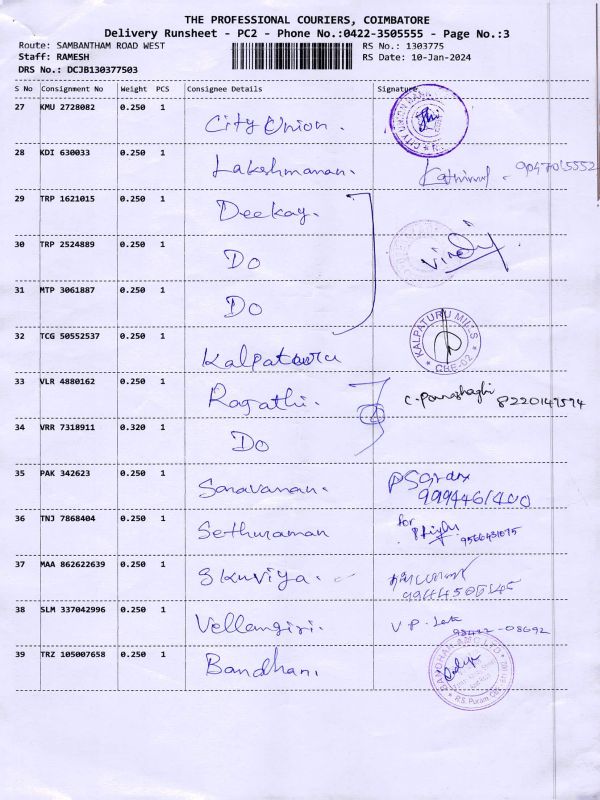 THE PROFESSIONAL COURIERS, COIMBATORE
Delivery Runsheet - PC2 - Phone No.:0422-3505555 - Page No.:3
Route: SAMBANTHAM ROAD WEST RS No.: 1303775
Staff: RAMESH RS Date: 10-Jan-2024
DRS No.: DCJB130377503
S No Consignment No Weight PCS Consignee Details Signature
27 KMU 2728082 0.250 1 City Union.
28 KDI 630033 0.250 1 Lakshmanan.
29 TRP 1621015 0.250 1 Deekay.
30 TRP 2524889 0.250 1 Do
31 MTP 3061887 0.250 1 Do
32 TCG 50552537 0.250 1 Kalpatauru KALPATURU MILLS CBE-02
33 VLR 4880162 0.250 1 Ragathi. 8220147594
34 VRR 7318911 0.320 1 Do ②
35 PAK 342623 0.250 1 Saravanan. 9994461400
36 TNJ 7868404 0.250 1 Sethuraman for
37 MAA 862622639 0.250 1
38 SLM 337042996 0.250 1 Vellangiri. V P.
39 TRZ 105007658 0.250 1 Bandhan.